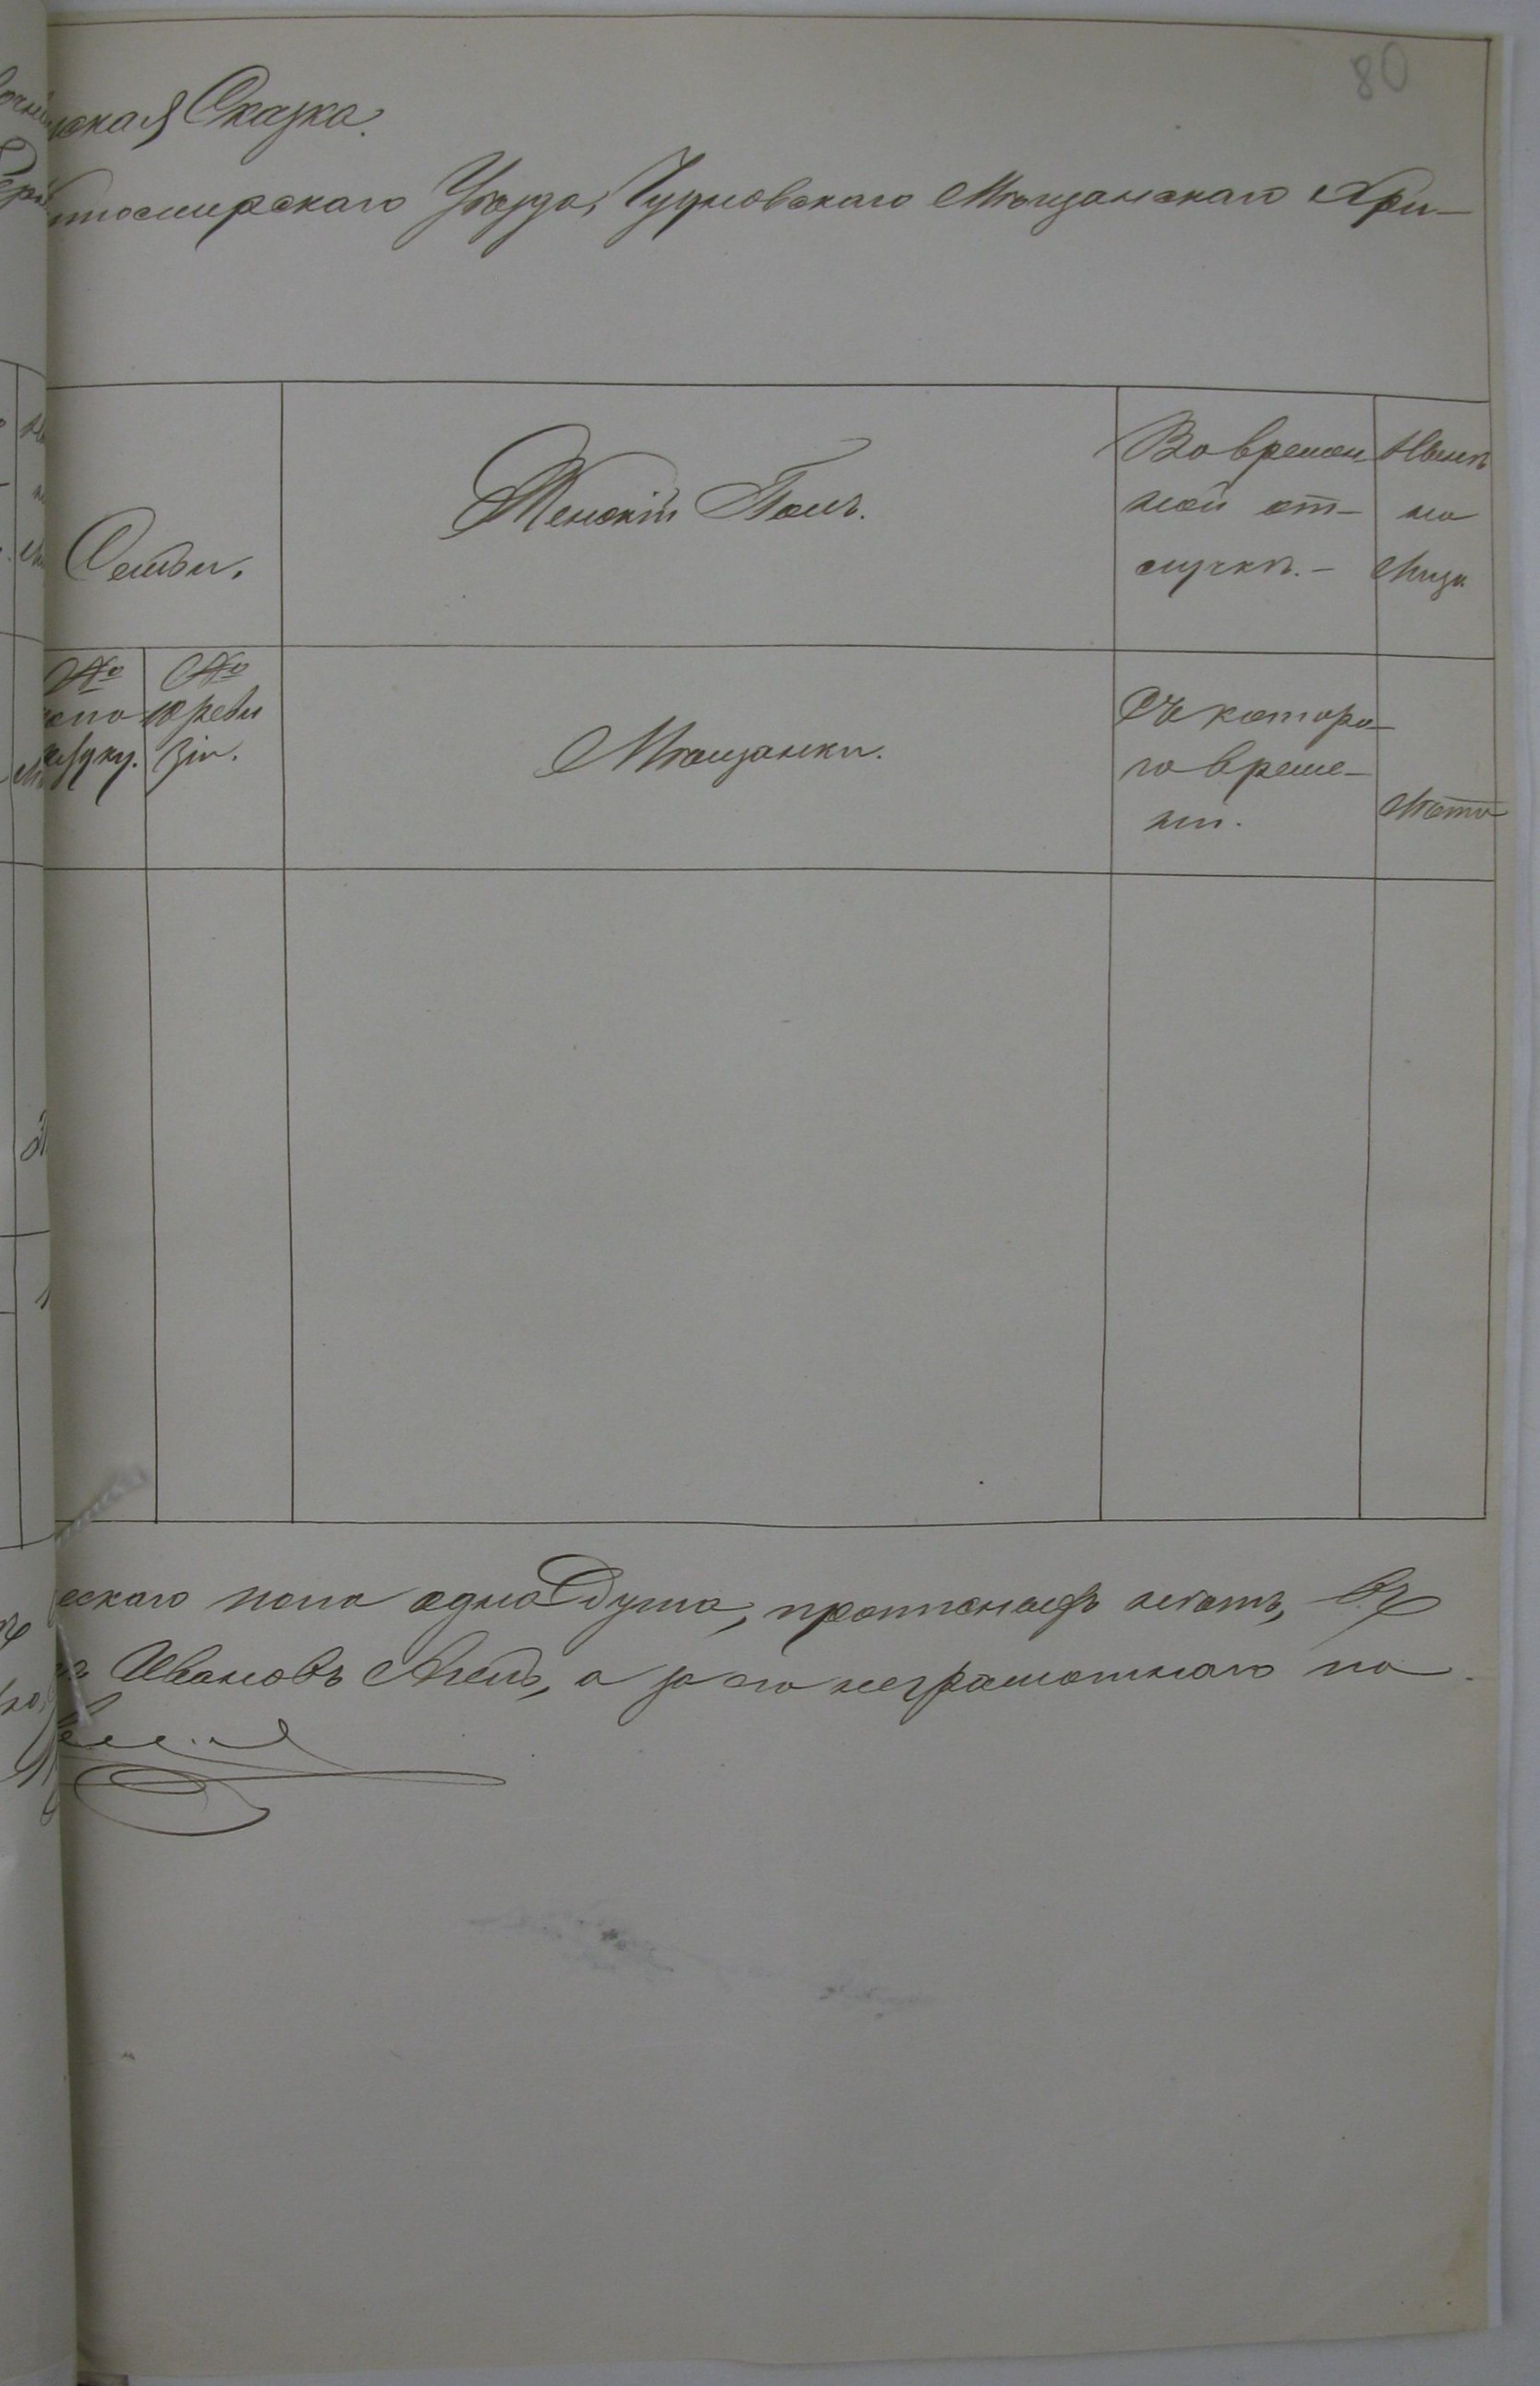 80
ская Сказка.
томирскаго Уѣзда, Чудновскаго Мѣщанскаго Хри-
Семьи.
Женскій Полъ.
Во времен
ной от-
лучкѣ.-
Нынѣ
на
лицо
№
№
по
10 реви
рядку.
зіи.
Мѣщанки.
Съ которо-
го време-
ни.
Лѣта
ескаго пола одна Душа, прописныхъ нѣтъ, въ
Ивановъ а за его неграмотнаго по